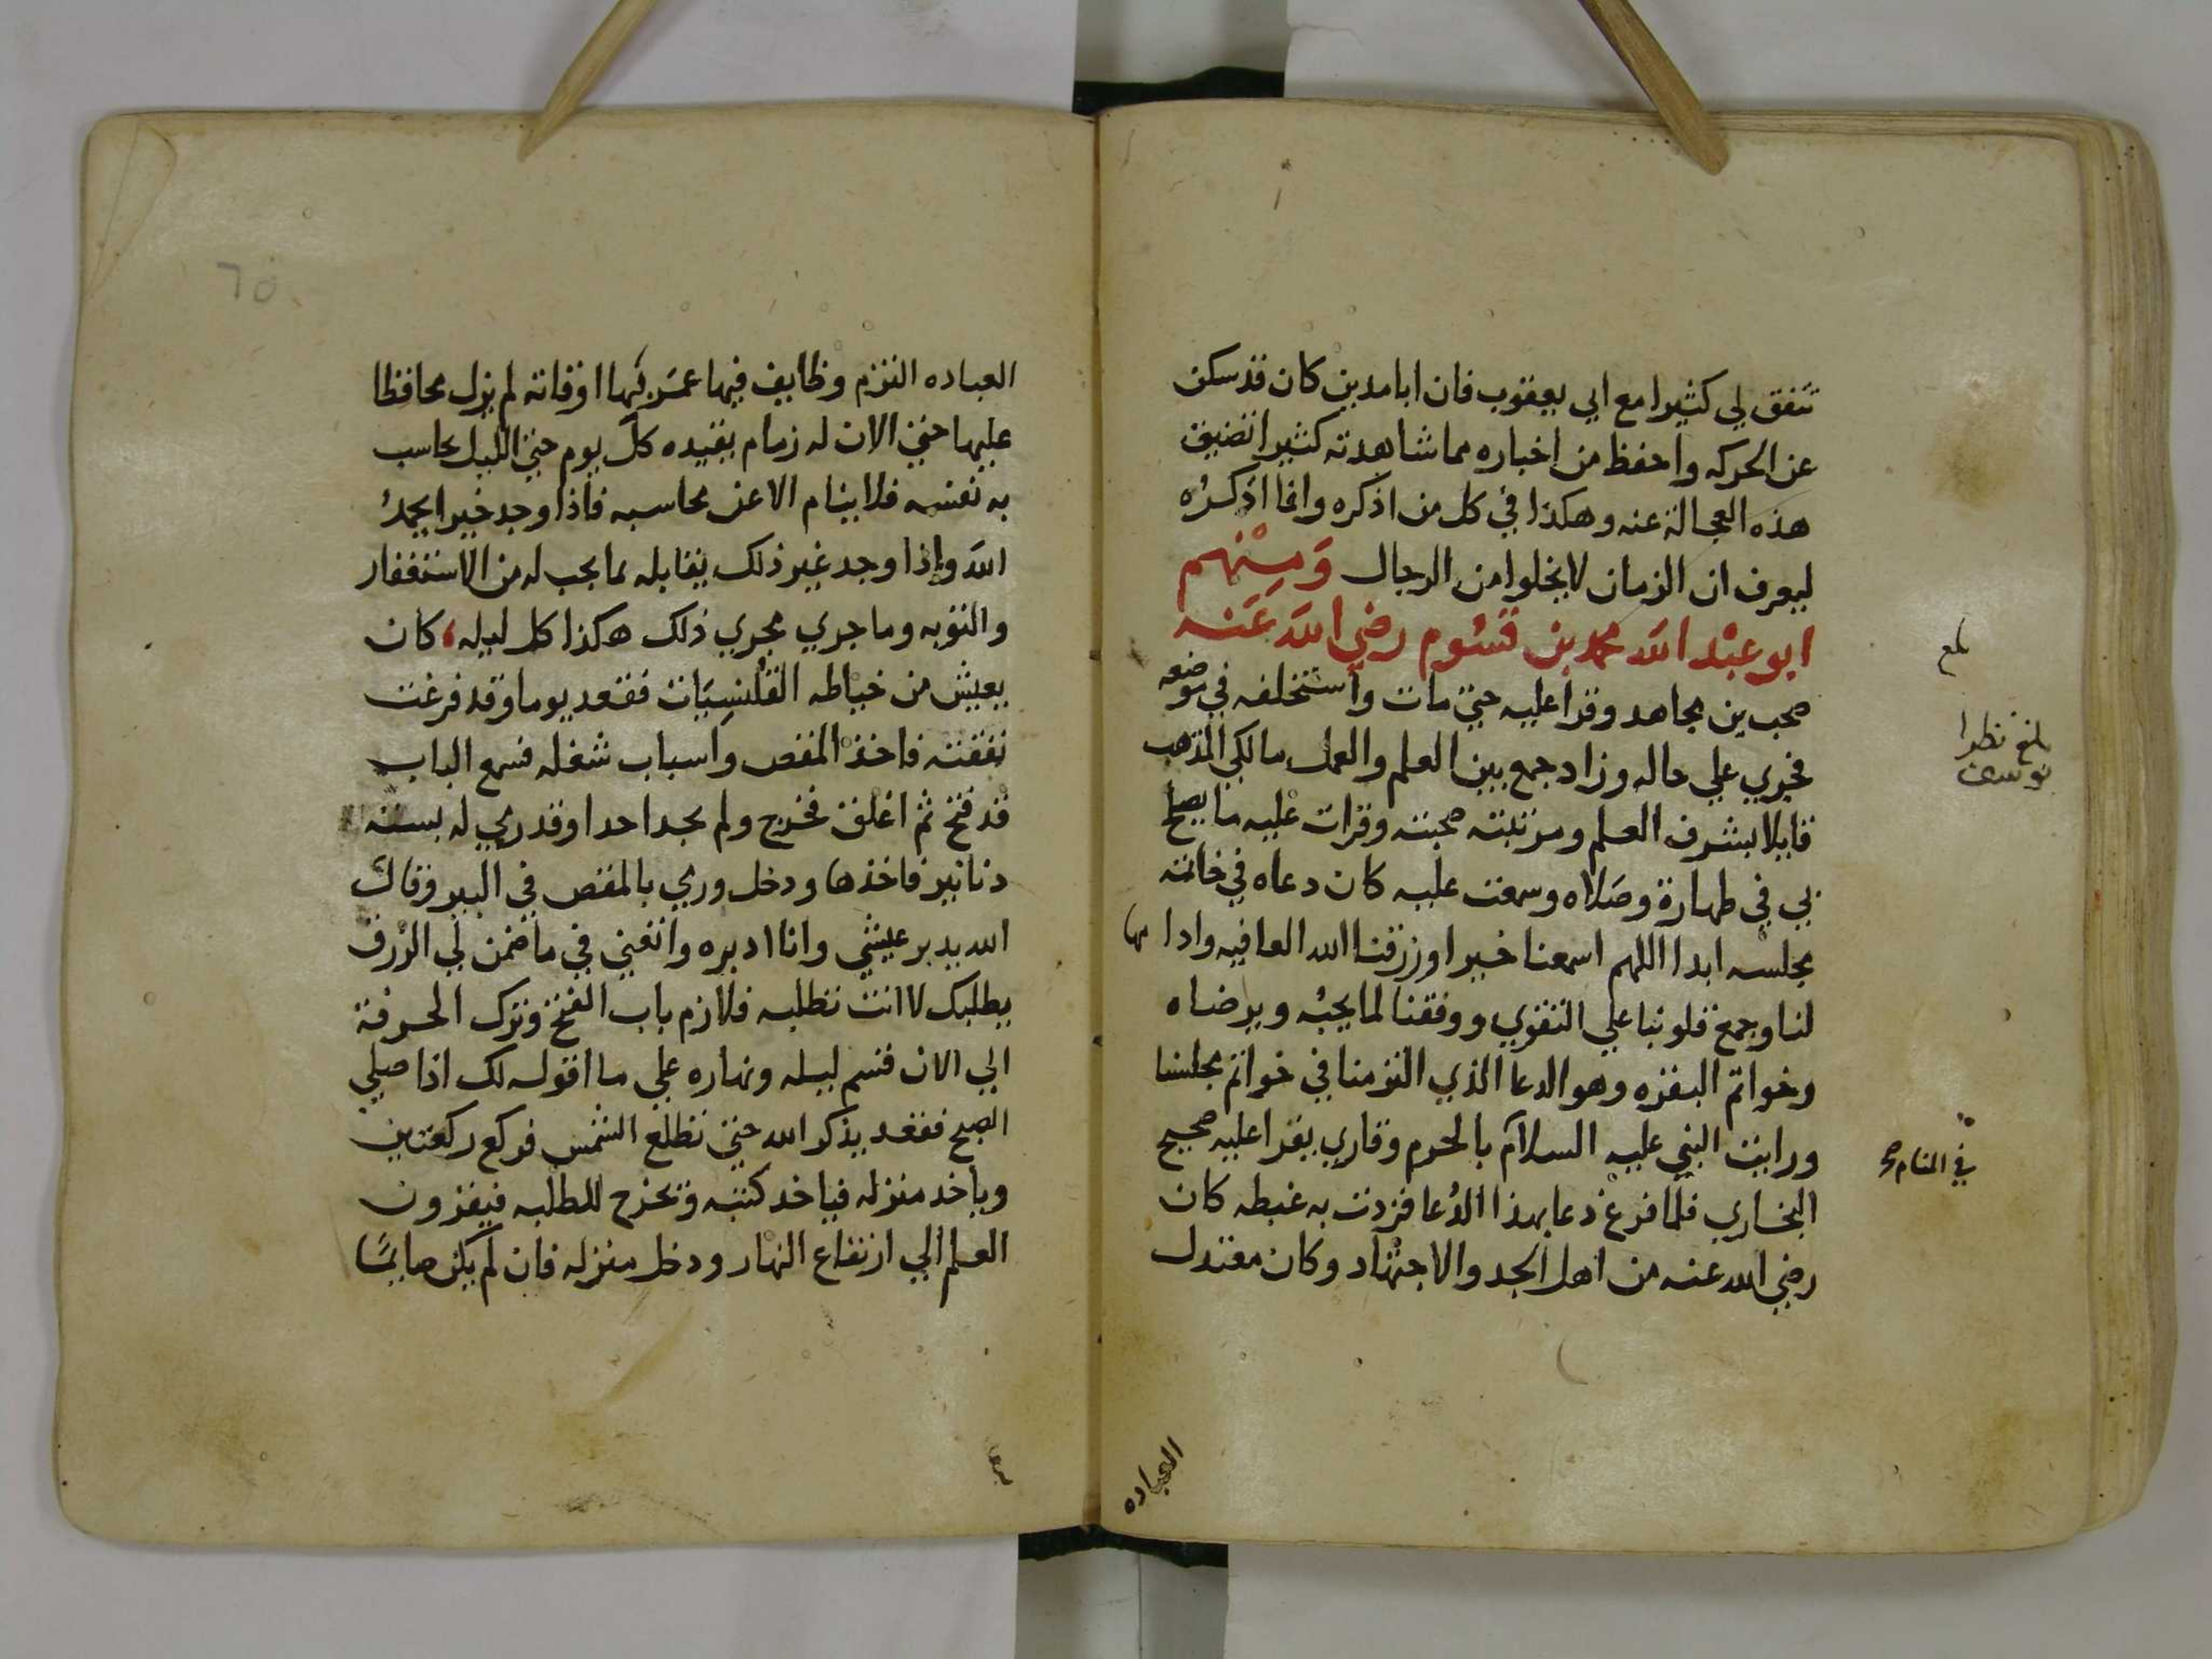 تتفق لي كثيرا مع ابي يعقوب فان ابا مدين كان قد سكن
عن الحركه واحفظ من اخباره مما شاهدته كثيرا تضيق
هذه العجالة عنه وهكذا في كل من اذكره وانما اذكره
ليعرف ان الزمان لا يخلوا من الرجال ومنهم
ابو عبد الله محمد بن قسوم رضي الله عنه
صحب بن مجاهد وقرا عليه حتي مات واستخلفه في موضعه
فجري علي حاله وزاد جمع بين العلم والعمل مالكي المذهب
قايلا بشرف العلم ومرتبته صحبته وقرات عليه ما يصلح
بي في طهارة وصلاه وسمعت عليه كان دعاه في خاتمة
مجلسه ابدا اللهم اسمعنا خيرا ورزقنا الله العافيه وادامها
لنا وجمع قلوبنا علي التقوي ووفقنا لما يحبه ويرضاه
وخواتم البقره وهو الدعا الذي التزمنا في خواتم مجلسنا
ورايت النبي عليه السلام بالحرم وقاري يقرا عليه صحيح
البخاري فلما فرغ دعا بهذا الدعا فزدت به غبطه كان
رضي الله عنه من اهل الجد والاجتهاد وكان معتدل
بلغ
بلغ نظرا
في المنام صح
العباده
العباده التزم وظايف فيها عمر بها اوقاته لم يزل محافظا
عليها حتي الان له زمام يقيده كل يوم حتي الليل يحاسب
به نفسه فلا ينام الا عن محاسبه فاذا وجد خيرا يحمد
الله واذا وجد غير ذلك يقابله بما يجب له من الاستغفار
والتوبه وما جري مجري ذلك هكذا كل ليله، كان
يعيش من خياطه القلنسيات فقعد يوما وقد فرغت
نفقته فاخذ المقص واسباب شغله فسمع الباب
قد فتح ثم اغلق فخرج ولم يجد احدا وقد رمي له بستة
دنانير فاخذها ودخل ورمي بالمقص في البير وقال
الله يدبر عيشي وانا ادبره واتعني في ما ضمن لي الرزق
يطلبك لا انت تطلبه فلازم باب الفتح وترك الحرفة
الي الان قسم ليله ونهاره علي ما اقوله لك اذا صلي
الصبح فقعد يذكر الله حتي تطلع الشمس فركع ركعتين
وياخد منزله فياخد كتبه وتخرج للطلبه فيقرون
العلم الي ارتفاع النهار ودخل منزله فان لم يكن صايما
٦٥